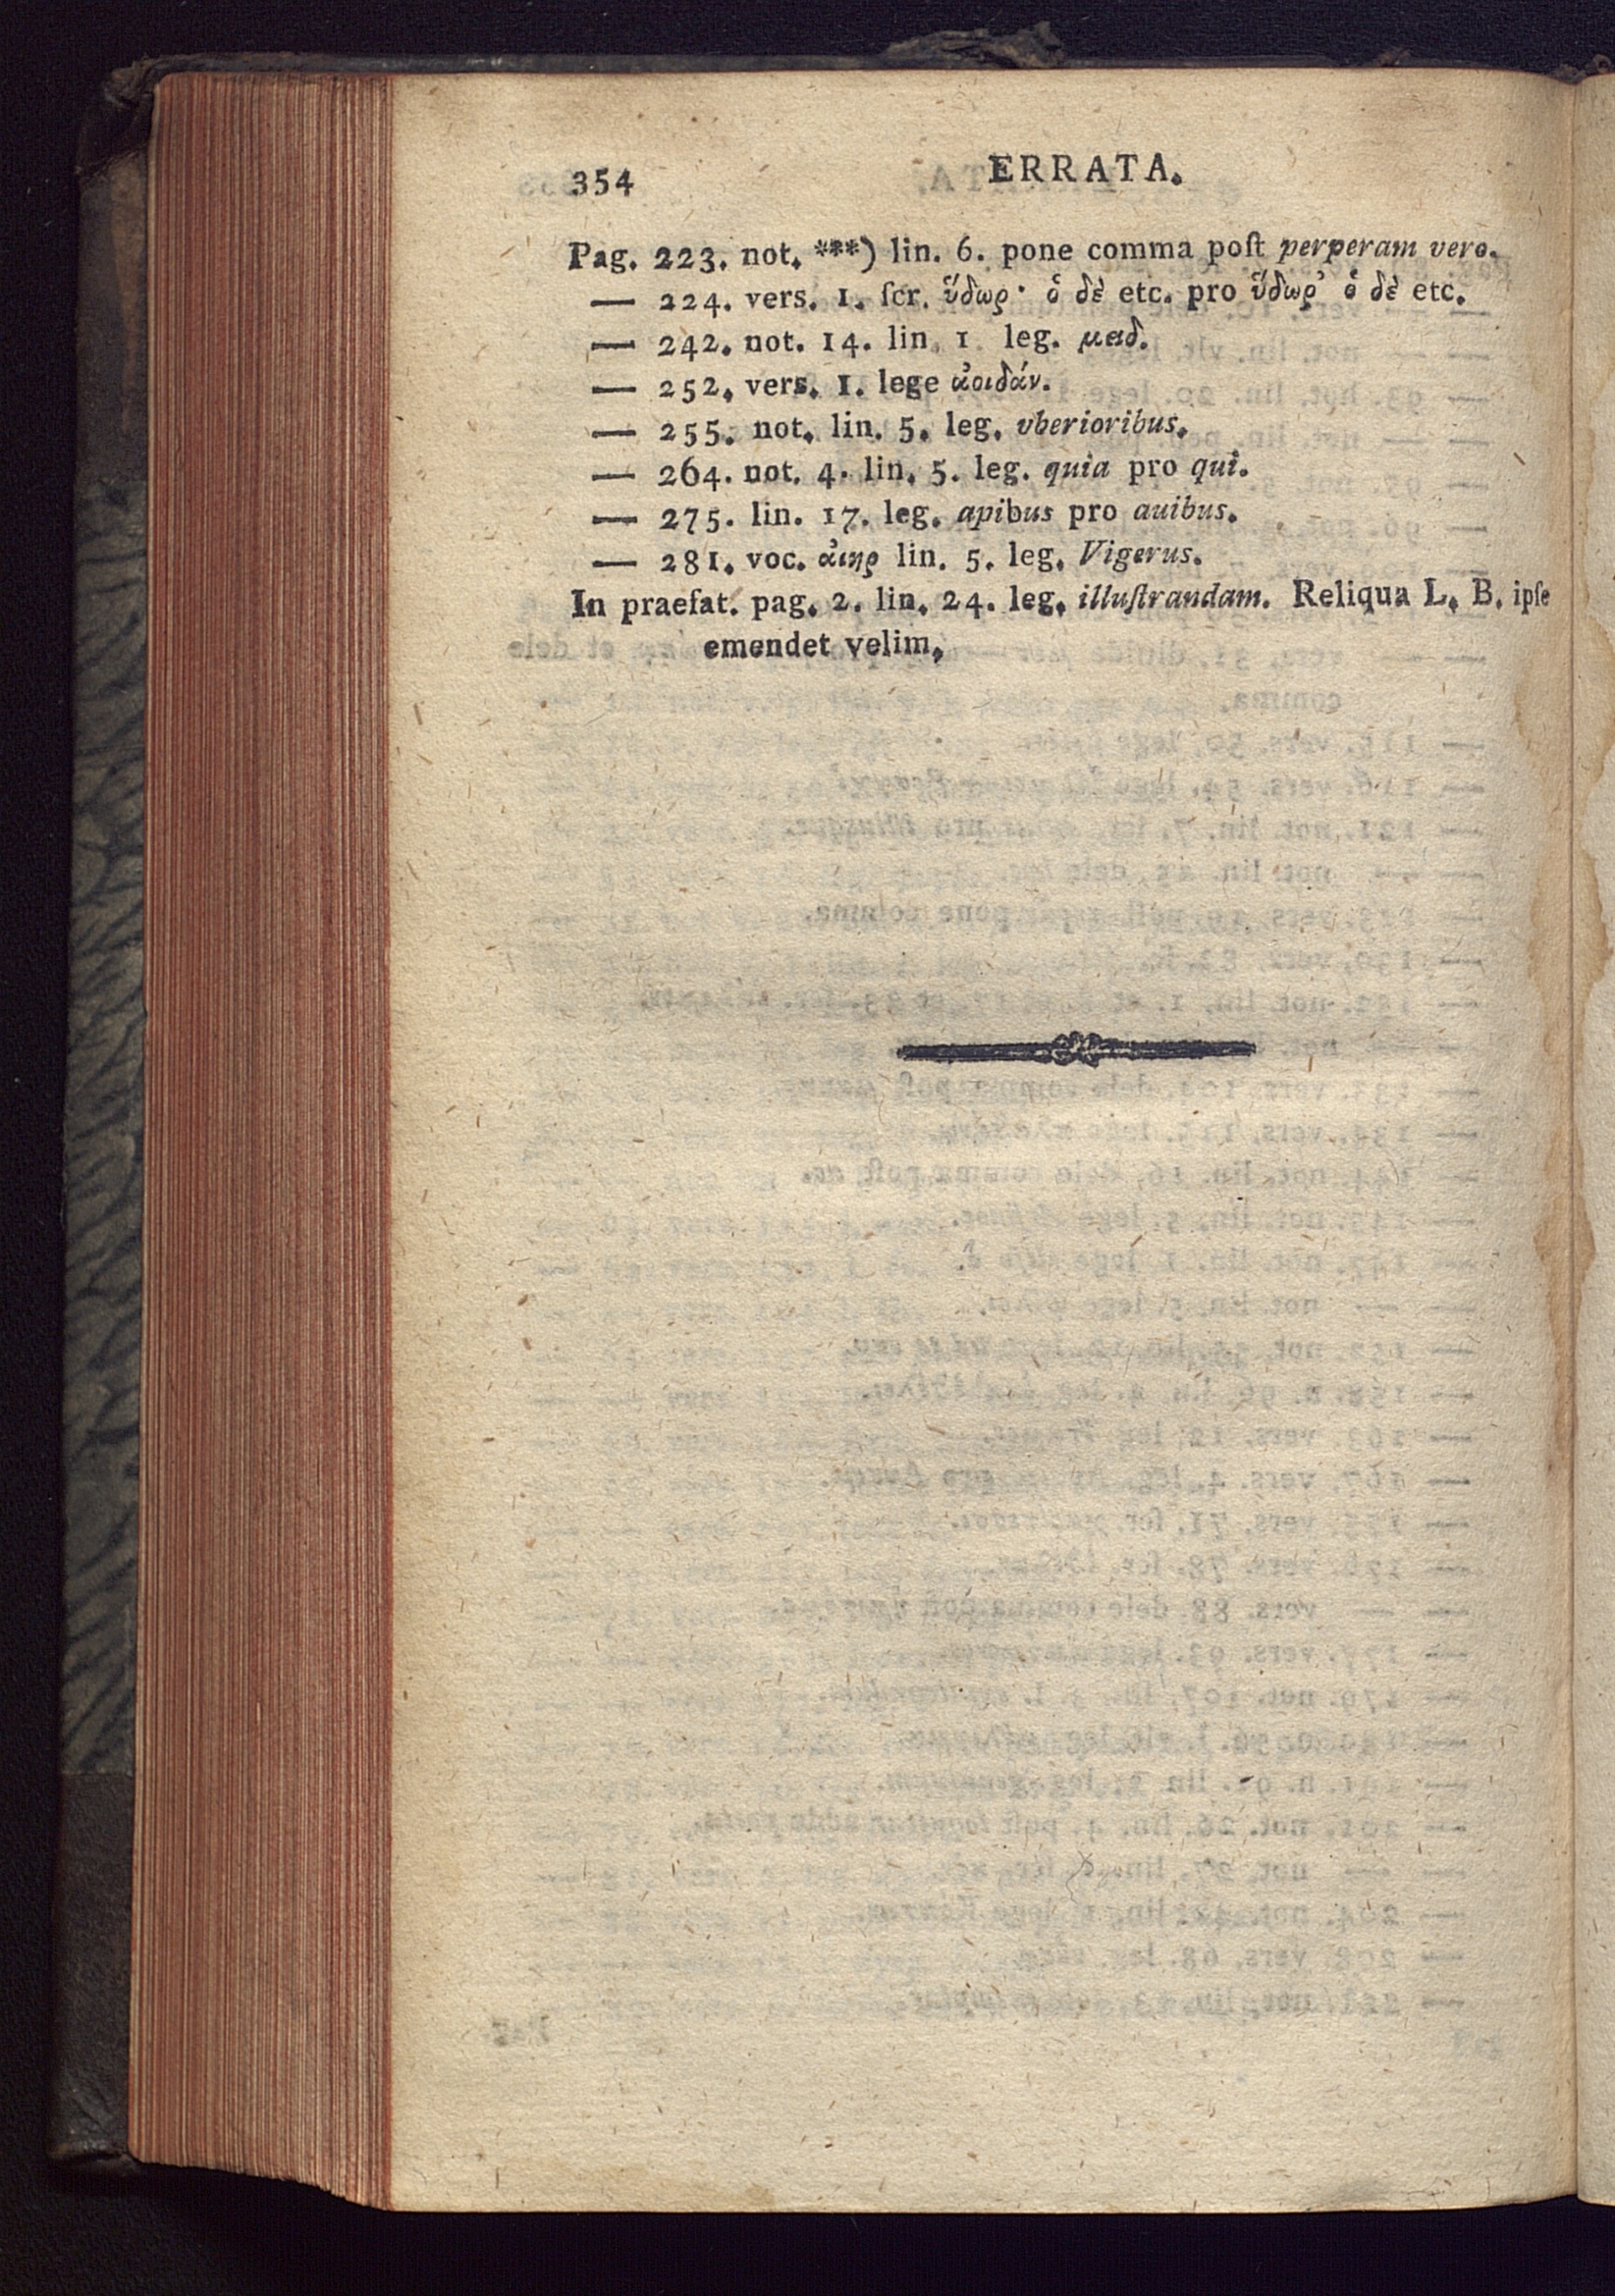 354
ERRATA.
Pag. 223. not. ***) lin. 6. pone comma poſt perperam vero.
— 224. vers. 1. ſcr. ὕδωρ· ὁ δὲ etc. pro ὕδωρ’ ὁ δὲ etc.
— 242. not. 14. lin. 1 leg. μαδ.
— 252. vers. 1. lege ἀοιδάν.
— 255. not. lin. 5. leg. vberioribus.
— 264. not. 4. lin. 5. leg. quia pro qui.
— 275. lin. 17. leg. apibus pro auibus.
— 281. voc. lin. 5. leg. Vigerus.
In praefat. pag. 2. lin. 24. leg. illuſtrandam. Reliqua L. B. ipſe
emendet velim.